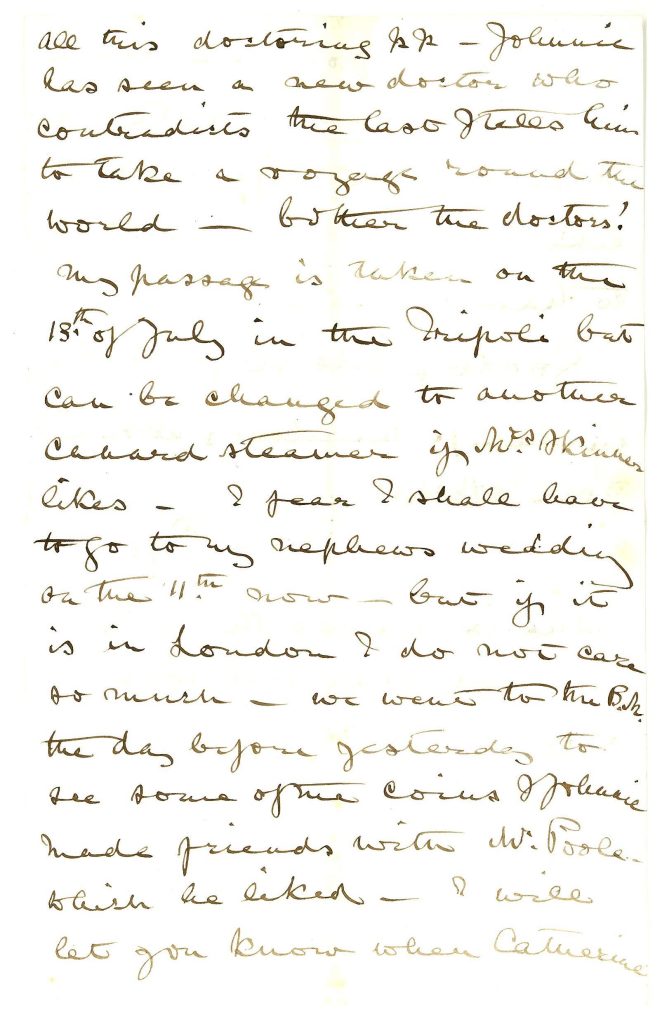 all this doctoring pp - Johnnie
has seen a new doctor who
contradicts the last & tells him
to take a voyage round the
world — bother the doctors!
My passage is taken on the
13th of July in the Tripoli but
can be changed to another
Cunard steamer if Mrs. Skinner
likes - I fear I shall have
to go to my nephews wedding
on the 11th now - but if it
is in London I do not care
so much - we went to the B.M.
the day before yesterday to
see some of the coins & Johnnie
made friends with Mr. Poole -
which he liked - I will
let you know when Catherine